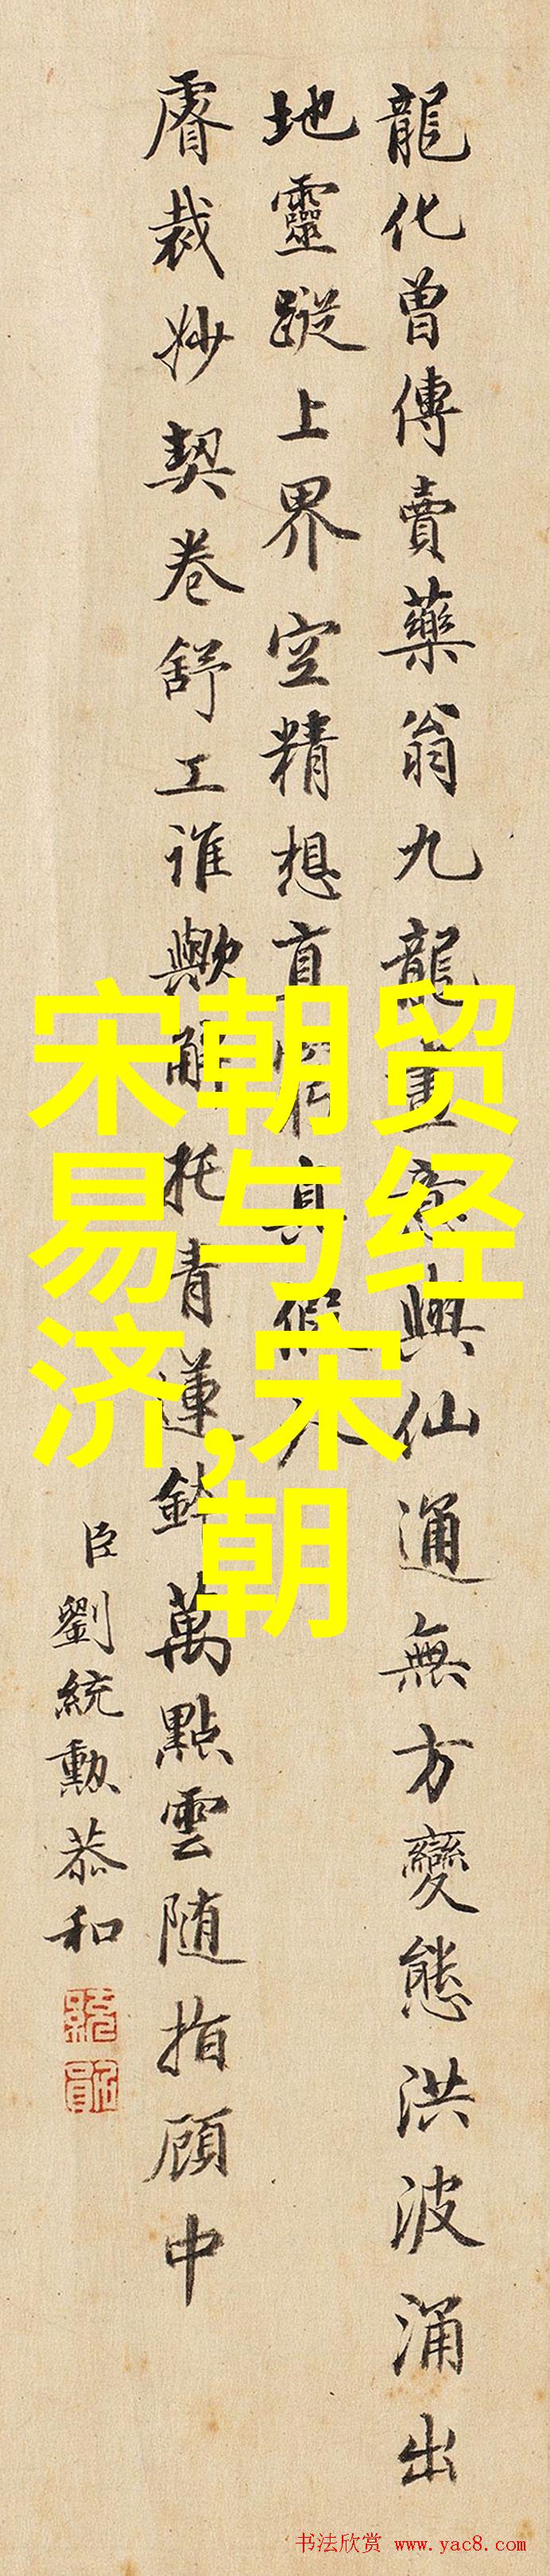 龍化曾傳賣藥翁九龍畫意與仙通無方變態洪波涌出
地靈蹤上界空精想直窮真假人
睿裁妙契卷舒工誰歟解托青蓮鉢萬點雲随指顧中
臣劉統勳恭和
宋朝贸
易与经
济,宋
朝
书法欣赏 www.yac8.com